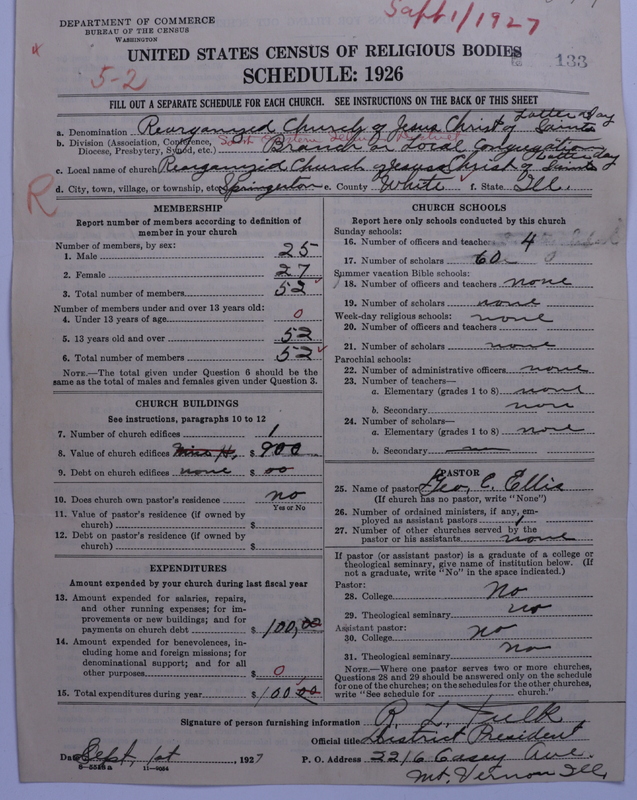 Sept 1/1927
DEPARTMENT OF COMMERCE
BUREAU OF THE CENSUS
WASHINGTON
UNITED STATES CENSUS OF RELIGIOUS BODIES
133
5-2
SCHEDULE: 1926
FILL OUT A SEPARATE SCHEDULE FOR EACH CHURCH. SEE INSTRUCTIONS ON THE BACK OF THIS SHEET
a. Denomination Reorganized Church of Jesus Christ of Latter Day Saints
b. Division (Association, Conference, Diocese, Presbytery, Synod, etc.) Branch or Local Congregation
c. Local name of church Reorganized Church of Jesus Christ of Latter day Saints
R
d. City, town, village, or township, etc. Springerton e. County White f. State Ill.
MEMBERSHIP
Report number of members according to definition of
member in your church
Number of members, by sex:
1. Male 25
2. Female 27
3. Total number of members 52
Number of members under and over 13 years old:
4. Under 13 years of age 0
5. 13 years old and over 52
6. Total number of members 52
NOTE.—The total given under Question 6 should be
same as the total of males and females given under Question 3.
CHURCH BUILDINGS
See instructions, paragraphs 10 to 12
7. Number of church edifices 1
8. Value of church edifices $ 900
9. Debt on church edifices none $ 00
10. Does church own pastor's residence no
Yes or No
11. Value of pastor's residence (if owned by
church) $
12. Debt on pastor's residence (if owned by
church) $
EXPENDITURES
Amount expended by your church during last fiscal year
13. Amount expended for salaries, repairs,
and other running expenses; for im-
provements or new buildings; and for
payments on church debt $ 100,00
14. Amount expended for benevolences, in-
cluding home and foreign missions; for
denominational support; and for all
other purposes $ 0
15. Total expenditures during year $ 100 00
CHURCH SCHOOLS
Report here only schools conducted by this church
Sunday schools:
16. Number of officers and teachers 4
17. Number of scholars 60
Summer vacation Bible schools:
18. Number of officers and teachers none
19. Number of scholars none
Week-day religious schools: none
20. Number of officers and teachers
21. Number of scholars none
Parochial schools:
22. Number of administrative officers none
23. Number of teachers—
a. Elementary (grades 1 to 8) none
b. Secondary none
24. Number of scholars—
a. Elementary (grades 1 to 8) none
b. Secondary
PASTOR
25. Name of pastor Geo. C. Ellis
(If church has no pastor, write "None")
26. Number of ordained ministers, if any, em-
ployed as assistant pastors 1
27. Number of other churches served by the
pastor or his assistants none
If pastor (or assistant pastor) is a graduate of a college or
theological seminary, give name of institution below. (If
not a graduate, write "No" in the space indicated.)
Pastor:
28. College No
29. Theological seminary no
Assistant pastor:
30. College No
31. Theological seminary No
NOTE.—Where one pastor serves two or more churches,
Questions 28 and 29 should be answered only on the schedule
for one of the churches; on the schedules for the other churches,
write "See schedule for church."
Signature of person furnishing information R. L. Fulk
Official title District President
Date Sept, 1st, 1927 P. O. Address 2216 Casey Ave.
Mt. Vernon Ill.